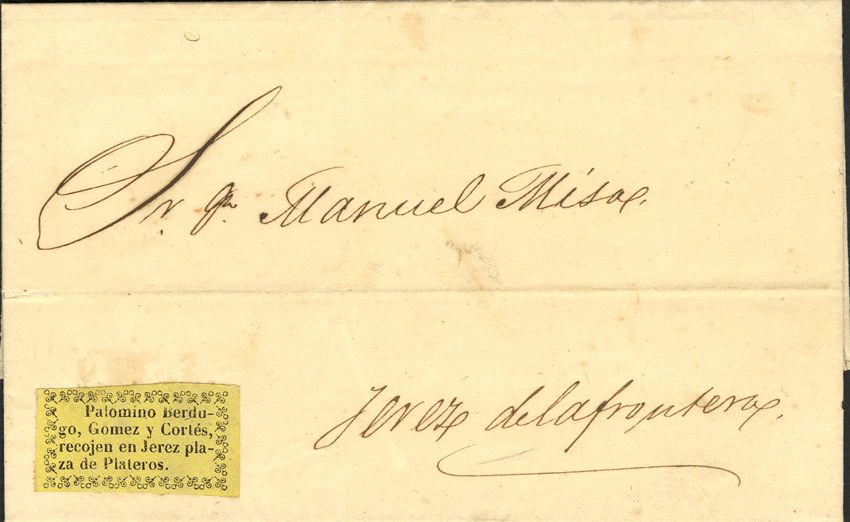 Sr. Dn. Manuel Misa.
Jerez delafrontera.
Palomino Berdu-
go, Gomez y Cortés,
recojen en Jerez pla-
za de Plateros.